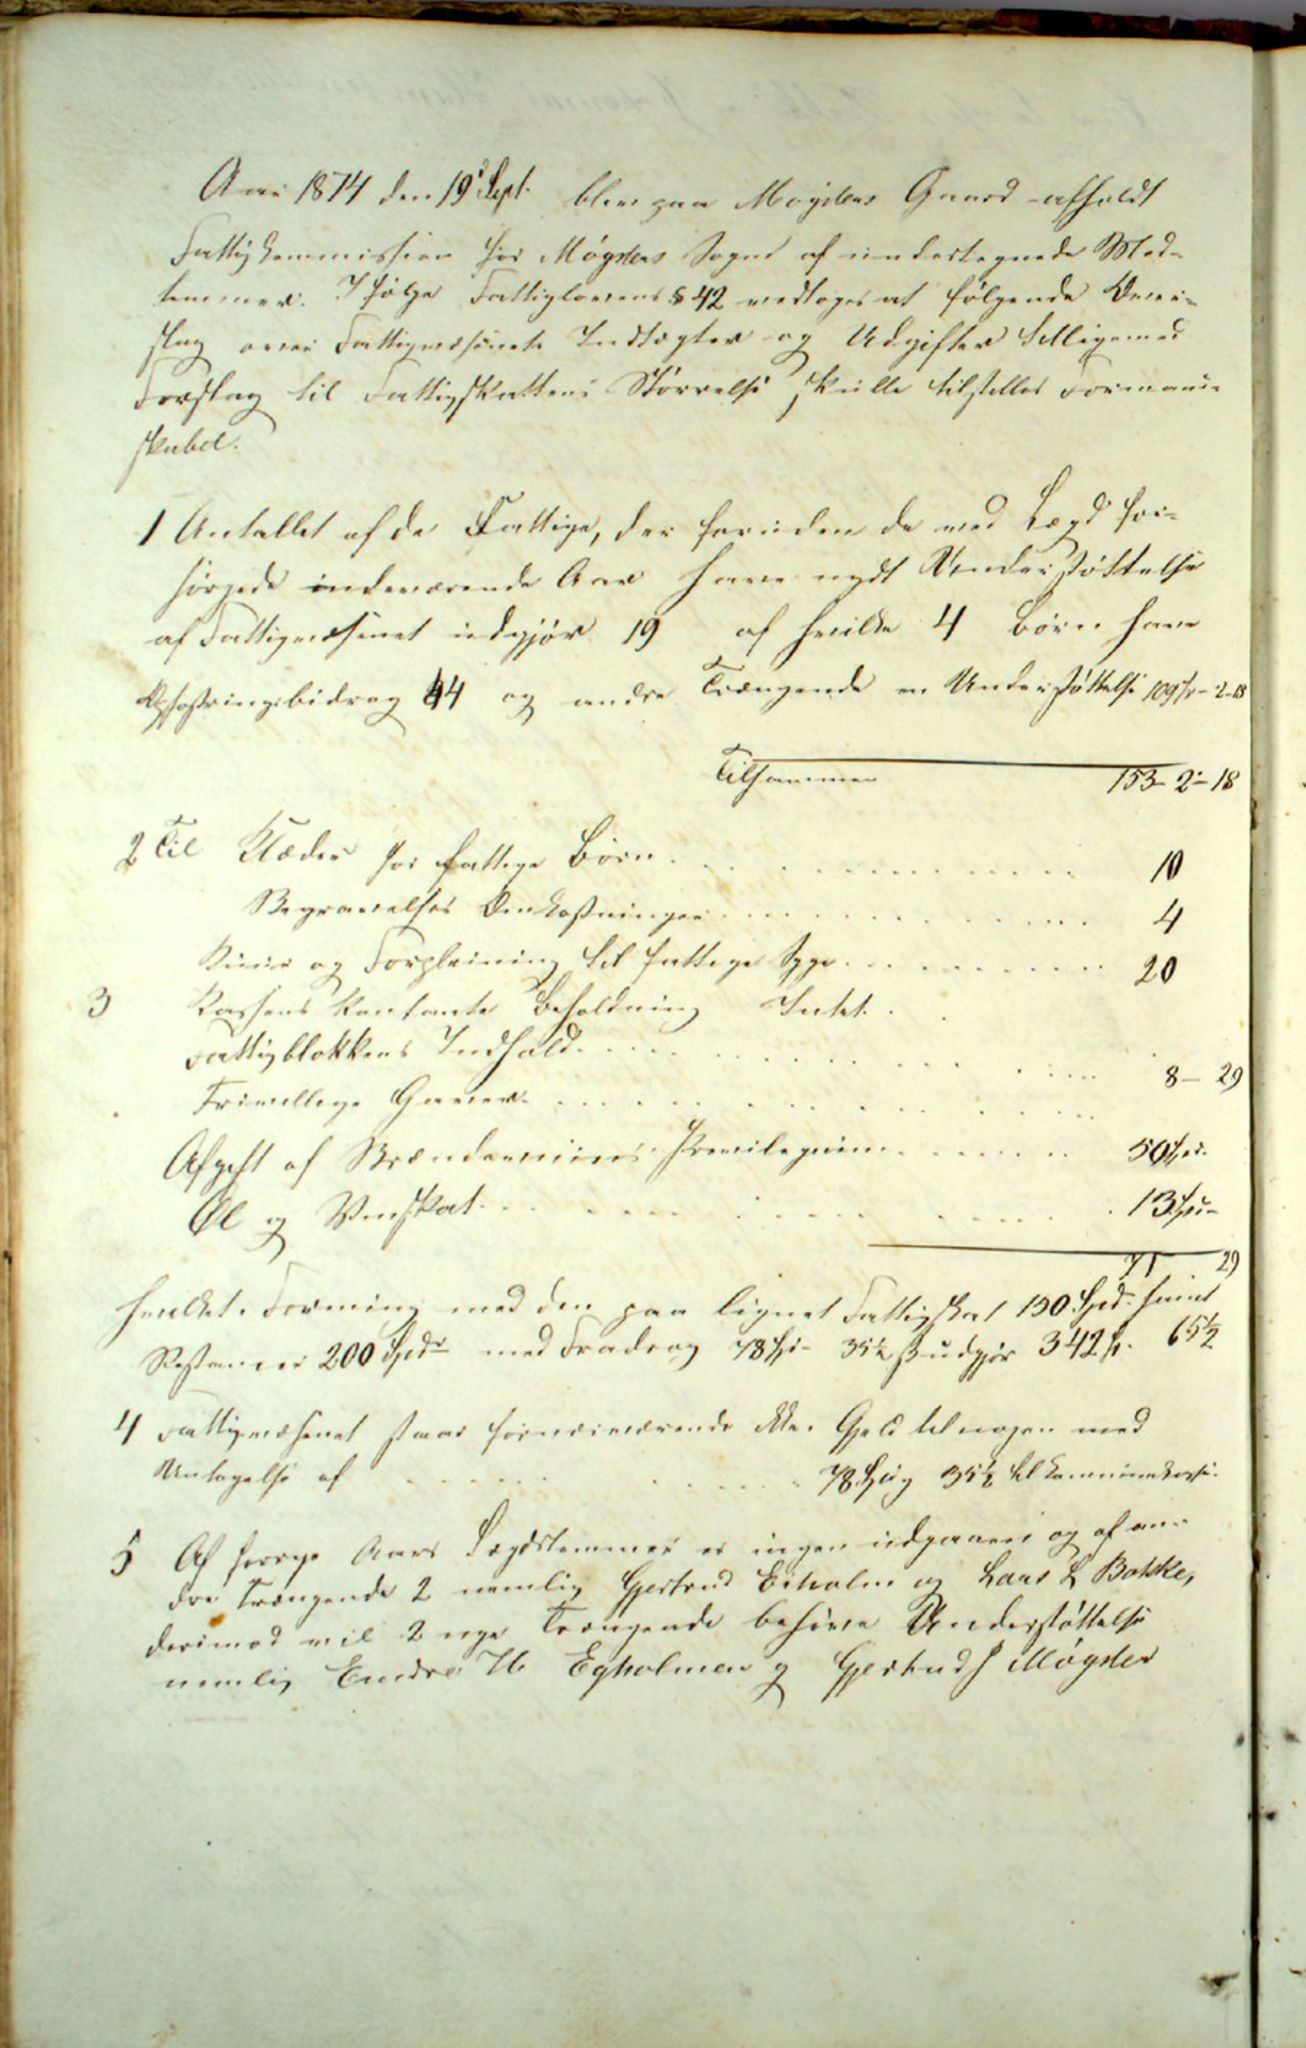 Aar 1874 den 19d Sept. blev paa Møgsters Gaard afholdt
Fattigkommission for Møgsters Sogn af undertegnede Med-
lemmer. I følge Fattiglovens § 42 vedtoges at følgende Over-
slag over Fattigvæsenets Indtægter og Udgifter tilligemed
Forslag til Fattigskattens Størrelse skulle tilstilles Formand-
skabet.
1 Antallet af de Fattige, der foruden de ved Lægd for-
sørgede indeværende Aar have nydt Understøttelse
af Fattigvæsenet udgjør 19 af hvilke 4 Børn have
Opfostringsbidrag 44 og andre Trængende en Understøttelse 109 Sp - 2 - 18
Tilsammen 153 - 2 - 18
2 Til Klæder for fattige Børn . . . . 10
Begravelses Omkostninger . . . . 4
Kuur og Forpleining til fattige Syge . . . . 20
3 Kassens kontante Beholdning Intet . .
Fattigblokkens Indhold . . . . 8 - 29
Frivillige Gaver . . . .
Afgift af Brændeviins Previlegium . . . . 50 Spd.
Øl og Vinskat . . . . 13 Spd -
71 29
hvilket Forening med den paa lignet Fattigskat 150 Spd. samt
Restancer 200 Spdr med Fradrag 78 Spd - 35½ ß udgjør 342 Sp. 65½
4 Fattigvæsenet staar fornærværende ikke i Gjeld til nogen med
Untagelse af . . . . 78 Spd og 35½ til Kommunekassen.
5 Af forrige Aars Lægdslemmer er ingen udgaaen og af an-
dre Trængende 2 nemlig Gjertrud Eiholm og Lars L Bakke,
derimod vil 2 nye Trængende behøve Understøttelse
nemlig Endre H. Egholmen og Gjertrud J Møgster